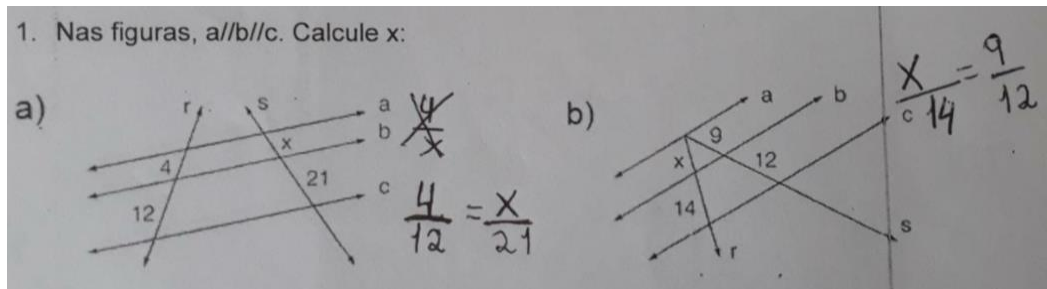 1. Nas figuras, a//b//c. Calcule x:
a)
r s
a
b
c
4 x
12 21
4/x
4/12 = x/21
b)
a b
c
9
x 12
14
s
r
x/14 = 9/12